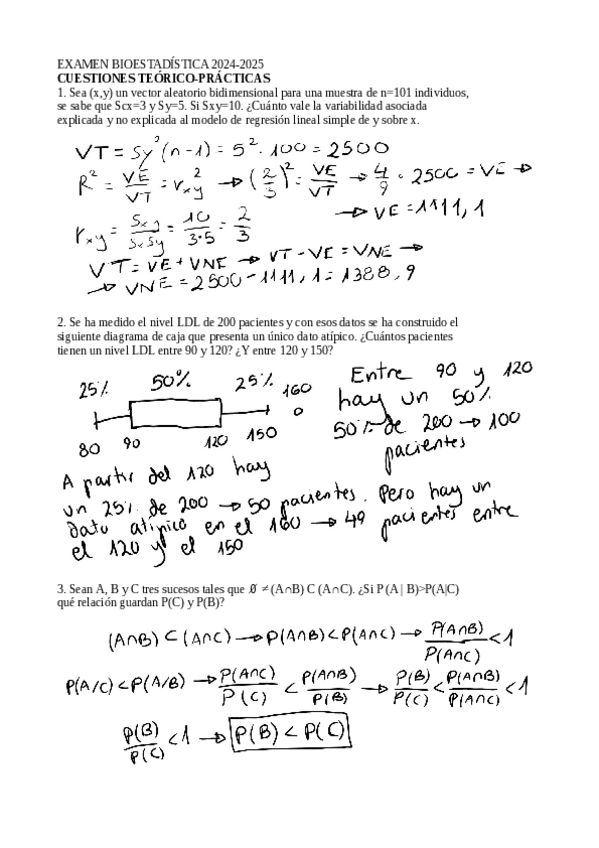 EXAMEN BIOESTADÍSTICA 2024-2025
CUESTIONES TEÓRICO-PRÁCTICAS
1. Sea (x,y) un vector aleatorio bidimensional para una muestra de n=101 individuos,
se sabe que Scx=3 y Sy=5. Si Sxy=10. ¿Cuánto vale la variabilidad asociada
explicada y no explicada al modelo de regresión lineal simple de y sobre x.
VT = Sy²(n-1) = 5² · 100 = 2500
R² = VE/VT = r_xy² → (2/3)² = VE/VT → 4/9 · 2500 = VE →
→ VE = 1111,1
r_xy = Sxy/SxSy = 10/3·5 = 2/3
VT = VE + VNE → VT - VE = VNE →
→ VNE = 2500 - 1111,1 = 1388,9
2. Se ha medido el nivel LDL de 200 pacientes y con esos datos se ha construido el
siguiente diagrama de caja que presenta un único dato atípico. ¿Cuántos pacientes
tienen un nivel LDL entre 90 y 120? ¿Y entre 120 y 150?
25% 50% 25% 160
80 90 120 150
Entre 90 y 120
hay un 50%
50% de 200 → 100
pacientes
A partir del 120 hay
un 25% de 200 → 50 pacientes. Pero hay un
dato atípico en el 160 → 49 pacientes entre
el 120 y el 150
3. Sean A, B y C tres sucesos tales que ∅ ≠ (A∩B) C (A∩C). ¿Si P (A | B)>P(A|C)
qué relación guardan P(C) y P(B)?
(A∩B) ⊂ (A∩C) → P(A∩B) < P(A∩C) → P(A∩B)/P(A∩C) < 1
P(A/C) < P(A/B) → P(A∩C)/P(C) < P(A∩B)/P(B) → P(B)/P(C) < P(A∩B)/P(A∩C) < 1
P(B)/P(C) < 1 → P(B) < P(C)